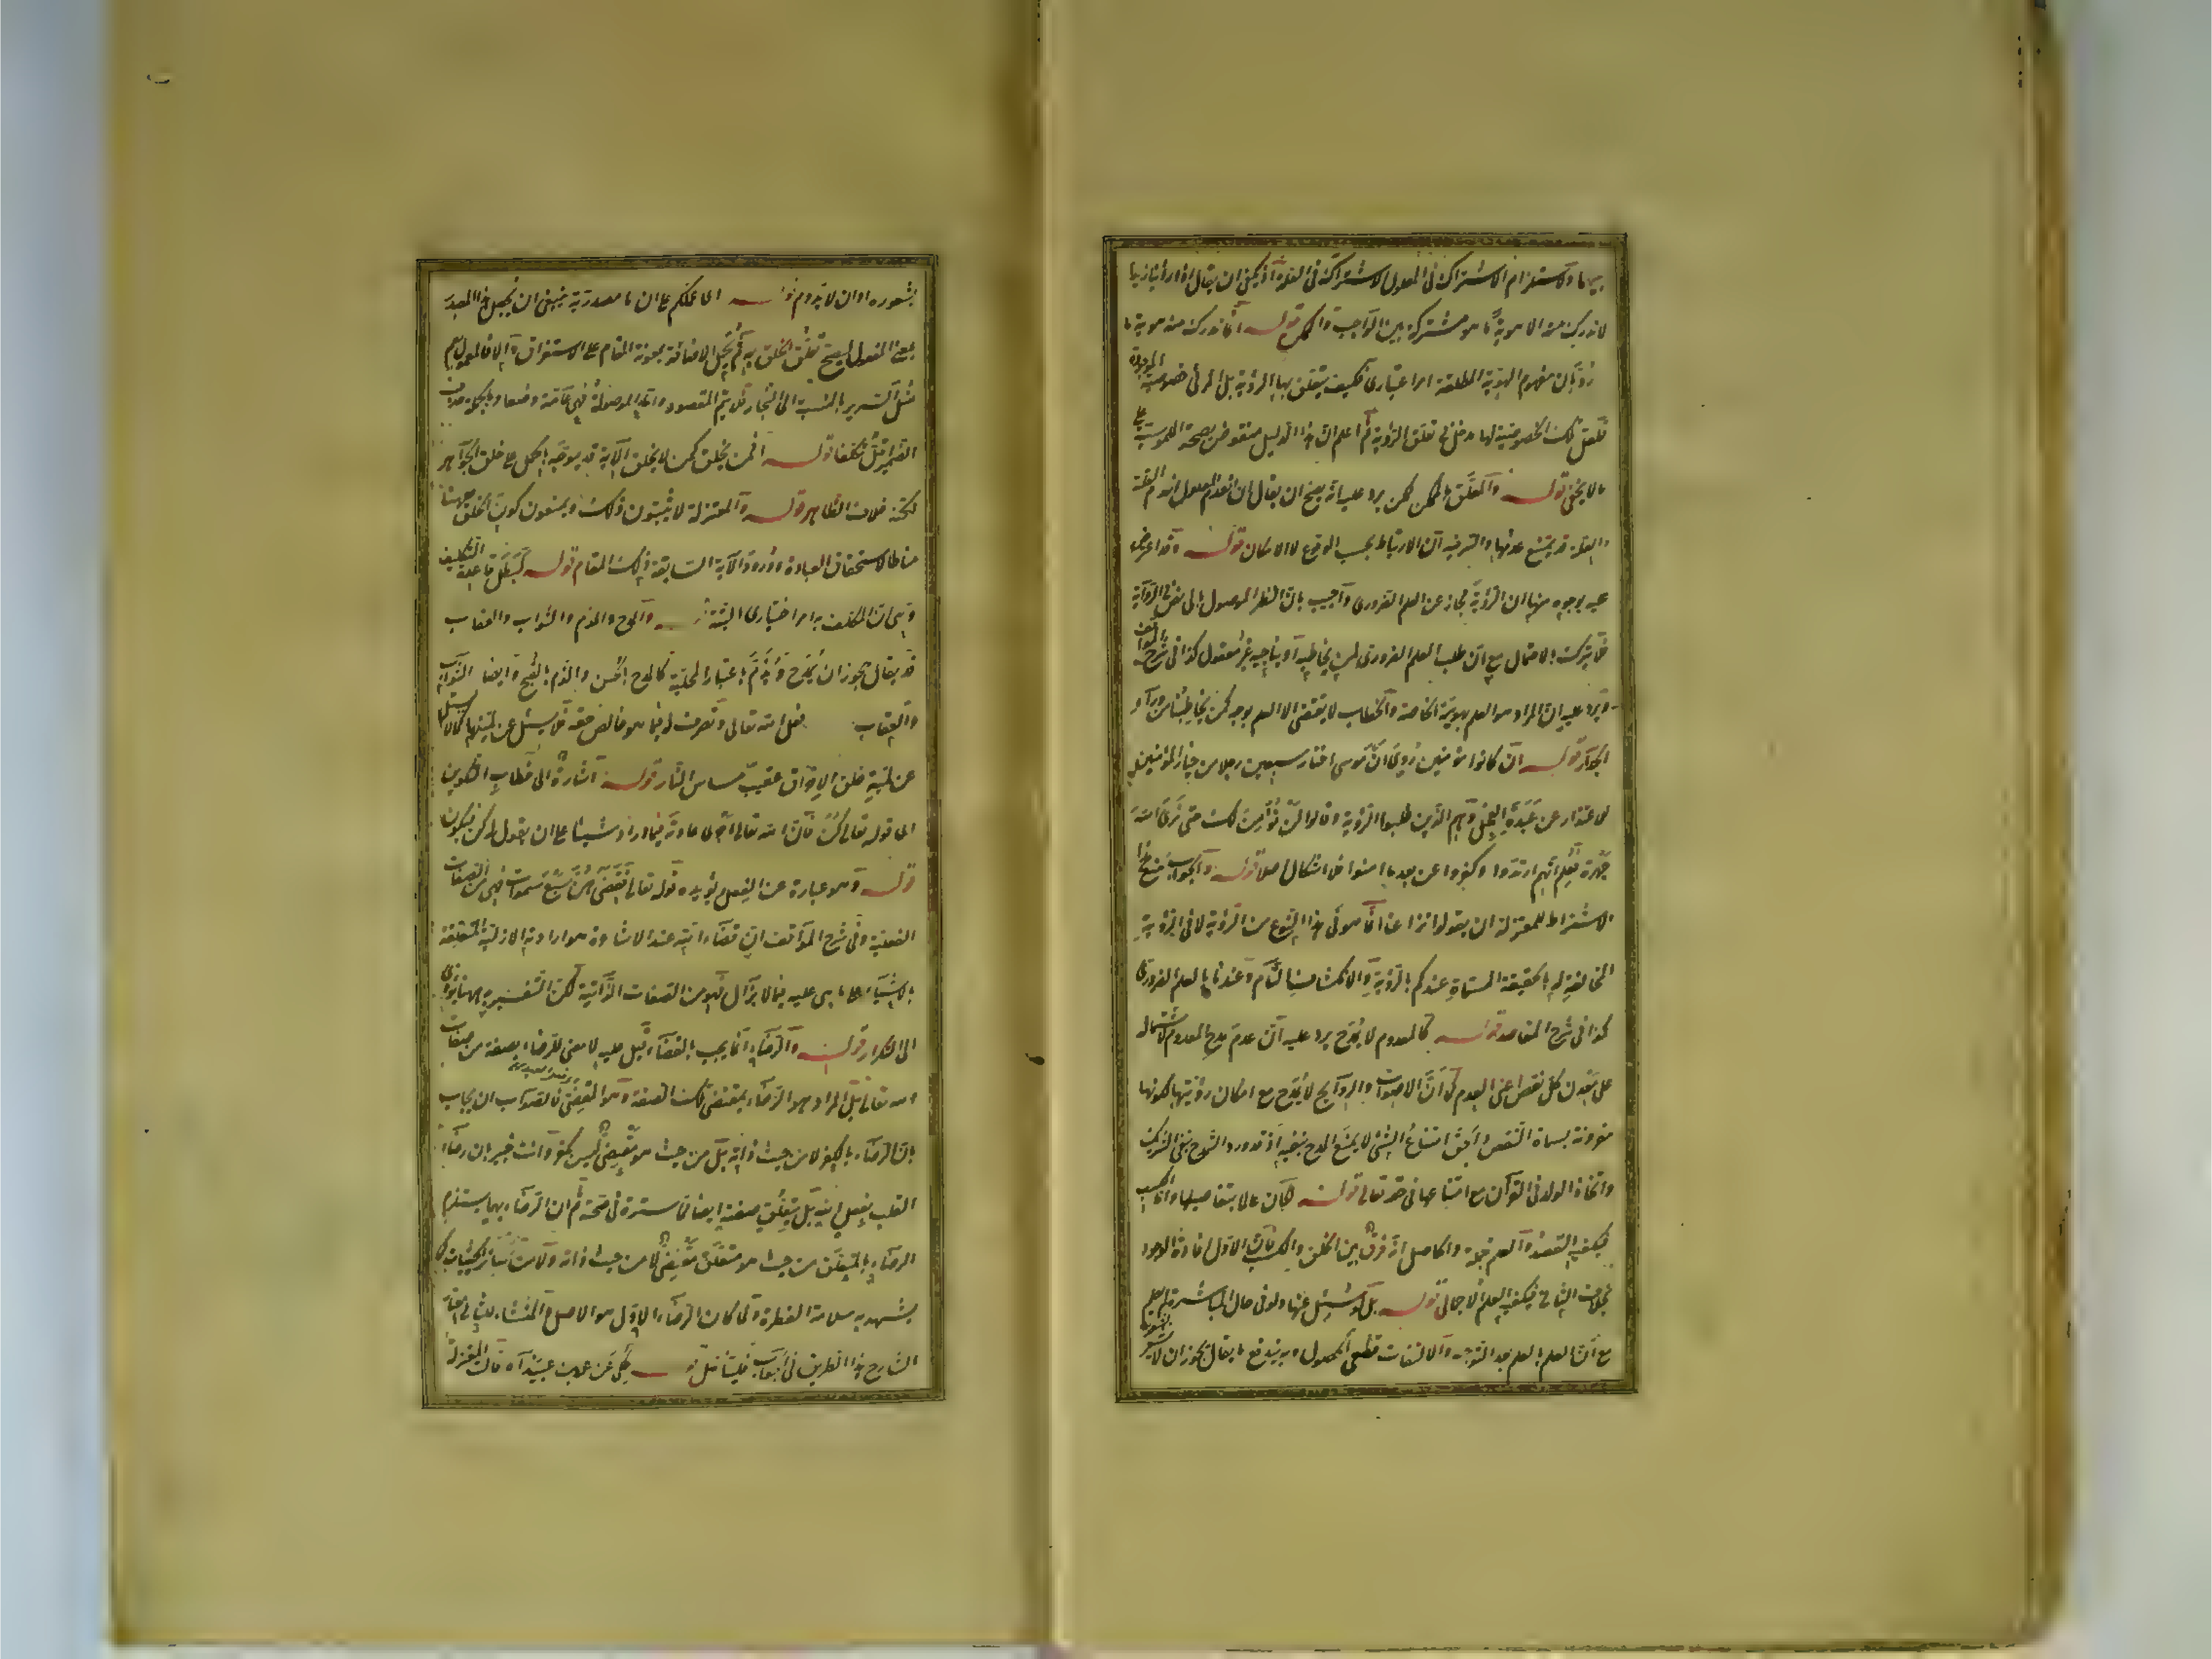 بينهما ولاستلزام الاشتراك في المعلول الاشتراك في العلة اذ يمكن ان يقال اذا رأينا زيدا
لا ندرك منه الا هوية ما هو مشتركة بين الواجب والممكن قوله انما ندرك منه هوية ما
رد بان مفهوم الهوية المطلقة امر اعتباري فكيف يتعلق بها الرؤية بل المرئي خصوصية الموجود
فلعل تلك الخصوصية لها مدخل في تعلق الرؤية ثم اعلم ان هذا الدليل منقوض بصحة الملموسية على
ما لا يخفى قوله والمعلق بالممكن ممكن يرد عليه انه يصح ان يقال ان انعدم المعلول انعدم العلة
والعلة قد يمتنع عدمها والسر فيه ان الارتباط بحسب الوقوع لا الامكان قوله وقد اعترض
عليه بوجوه منها ان الرؤية مجاز عن العلم الضروري واجيب بان النظر الموصول بالى نص في الرؤية
فلا يترك بالاحتمال مع ان طلب العلم الضروري لمن يخاطبه ويناجيه غير معقول كذا في شرح المواقف
ويرد عليه ان المراد هو العلم بهويته الخاصة والخطاب لا يقتضي الا العلم بوجه كمن يخاطبنا من وراء
الجدار قوله ان كانوا مؤمنين روي ان موسى اختار سبعين رجلا من خيار المؤمنين
للاعتذار عن عبدة العجل وهم الذين طلبوا الرؤية وقالوا لن نؤمن لك حتى نرى الله
جهرة فعلم انهم ارتدوا وكفروا عن بعد ما امنوا فلا اشكال اصلا قوله والجواب منع هذا
الاشتراط للمعتزلة ان يقولوا نزاعنا انما هو في هذا النوع من الرؤية لا في الرؤية
المخالفة له بالحقيقة المسماة عندكم بالرؤية والانكشاف التام وعندنا بالعلم الضروري
كذا في شرح المقاصد قوله كالمعدوم لا يمدح يرد عليه ان عدم مدح المعدوم لاشتماله
على معدن كل نقص اعني العدم كما ان الاصوات والروايح لا يمدح مع امكان رؤيتها لكونها
مقرونة بسماة النقص والحق امتناع الشئ لا يمنع المدح بنفيه اذ قد ورد التمدح بنفي الشريك
واتخاذ الولد في القرآن مع امتناعهما في حقه تعالى قوله لكان عالما بتفاصيلها واما الكسب
فيكفيه القصد والعلم جملة والحاصل انه فرق بين الخلق والكسب فان الاول افادة الوجود
بخلاف الثاني فيكفيه العلم الاجمالي قوله بل لو سئل عنها ولو في حال المباشرة لم يعلم
مع ان العلم بالعلم بعد التوجه والالتفات قطعي الحصول وبه يندفع ما يقال يجوز ان لا يشعر
بشعوره او ان لا يدوم قوله اي عملكم على ان ما مصدرية ينبغي ان يجعل هذا المصدر
بمعنى المفعول ليصح تعلق الخلق به ثم يجعل الاضافة بمعونة المقام على الاستغراق والا فالمعمول يعم
مثل السرير بالنسبة الى النجار فلا يتم المقصود واما الموصولة فهي عامة وضعا
قوله افمن يخلق كمن لا يخلق الآية قد يوجه بالحمل على خلق الجواهر
لكنه خلاف الظاهر قوله والمعتزلة لا يثبتون ذلك ويمنعون كون الخلق مناطا
مناطا لاستحقاق العبادة وورود الآية السابقة في ذلك المقام قوله لبطل قاعدة التكليف
وهي ان المكلف به امر اختياري البتة والمدح والذم والثواب والعقاب
قد يقال يجوز ان يمدح ويذم باعتبار المحلية كالمدح بالحسن والذم بالقبح وايضا الثواب
والعقاب فعل الله تعالى وتصرف له فيما هو خالص حقه فلا يسئل عن لميتهما كما لا يسئل
عن لمية خلق الاحراق عقيب مساس النار قوله اشارة الى خطاب التكوين
اي قوله تعالى كن فان الله تعالى اجرى عادته فيما اراد شيئا على ان يقول له كن فيكون
قوله وهو عبارة عن الفعل يؤيده قوله تعالى فقضاهن سبع سموات فهي من الصفات
الفعلية وفي شرح المواقف ان قضاء الله عند الاشاعرة هو ارادته الازلية المتعلقة
بالاشياء على ما هي عليه فيما لا يزال فهو من الصفات الذاتية لكن التفسير به ههنا يؤدي
الى التكرار قوله والرضاء انما يجب بالقضاء قيل عليه لا معنى للرضاء بصفة من صفات
الله تعالى بل المراد هو الرضاء بمقتضى تلك الصفة وهو المقضي فالصواب ان يجاب
بان الرضاء بالكفر لا من حيث ذاته بل من حيث هو مقضي ليس بكفر وانت خبير بان رضاء
القلب بفعل الله بل بتعلق صفته ايضا مما لا سترة في صحته ثم ان الرضاء بهما يستلزم
الرضاء بالمتعلق من حيث هو متعلق مقضي لا من حيث ذاته ولا من سائر الحيثيات كما
يشهد به سلامة الفطرة ولما كان الرضاء الاول هو الاصل والمنشاء للثاني اختار
الشارح هذا الطريق في الجواب فليتأمل قوله حكي عن عمرو بن عبيد آه قالت المعتزلة